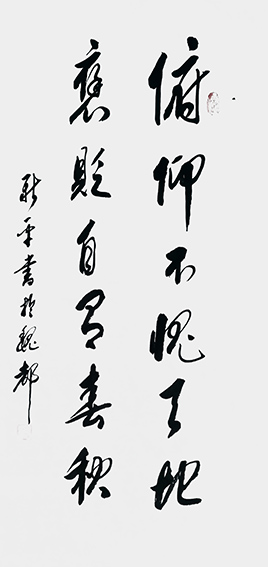 俯仰不愧天地
褒贬自有春秋
新平书于魏都